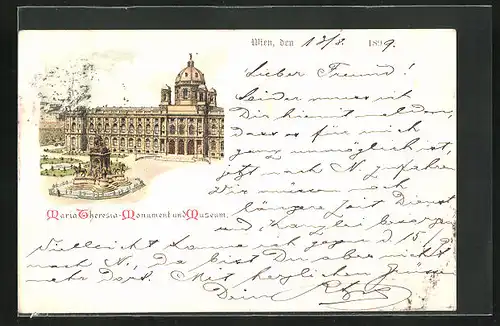 Wien, den 13/8. 1899.
Lieber Freund!
Leider muss ich
Dir hiemit melden,
dass es für mich
ganz unmöglich ist,
jetzt nach N. zu fahren.
Wir müssen noch
längere Zeit Dienst
und Kanzlei besorgen
Maria Theresia-Monument und Museum.
Vielleicht komme ich gegen d 15/9
nach N., da bist Du aber nicht
mehr dort. Mit herzlichen Grüssen
Dein